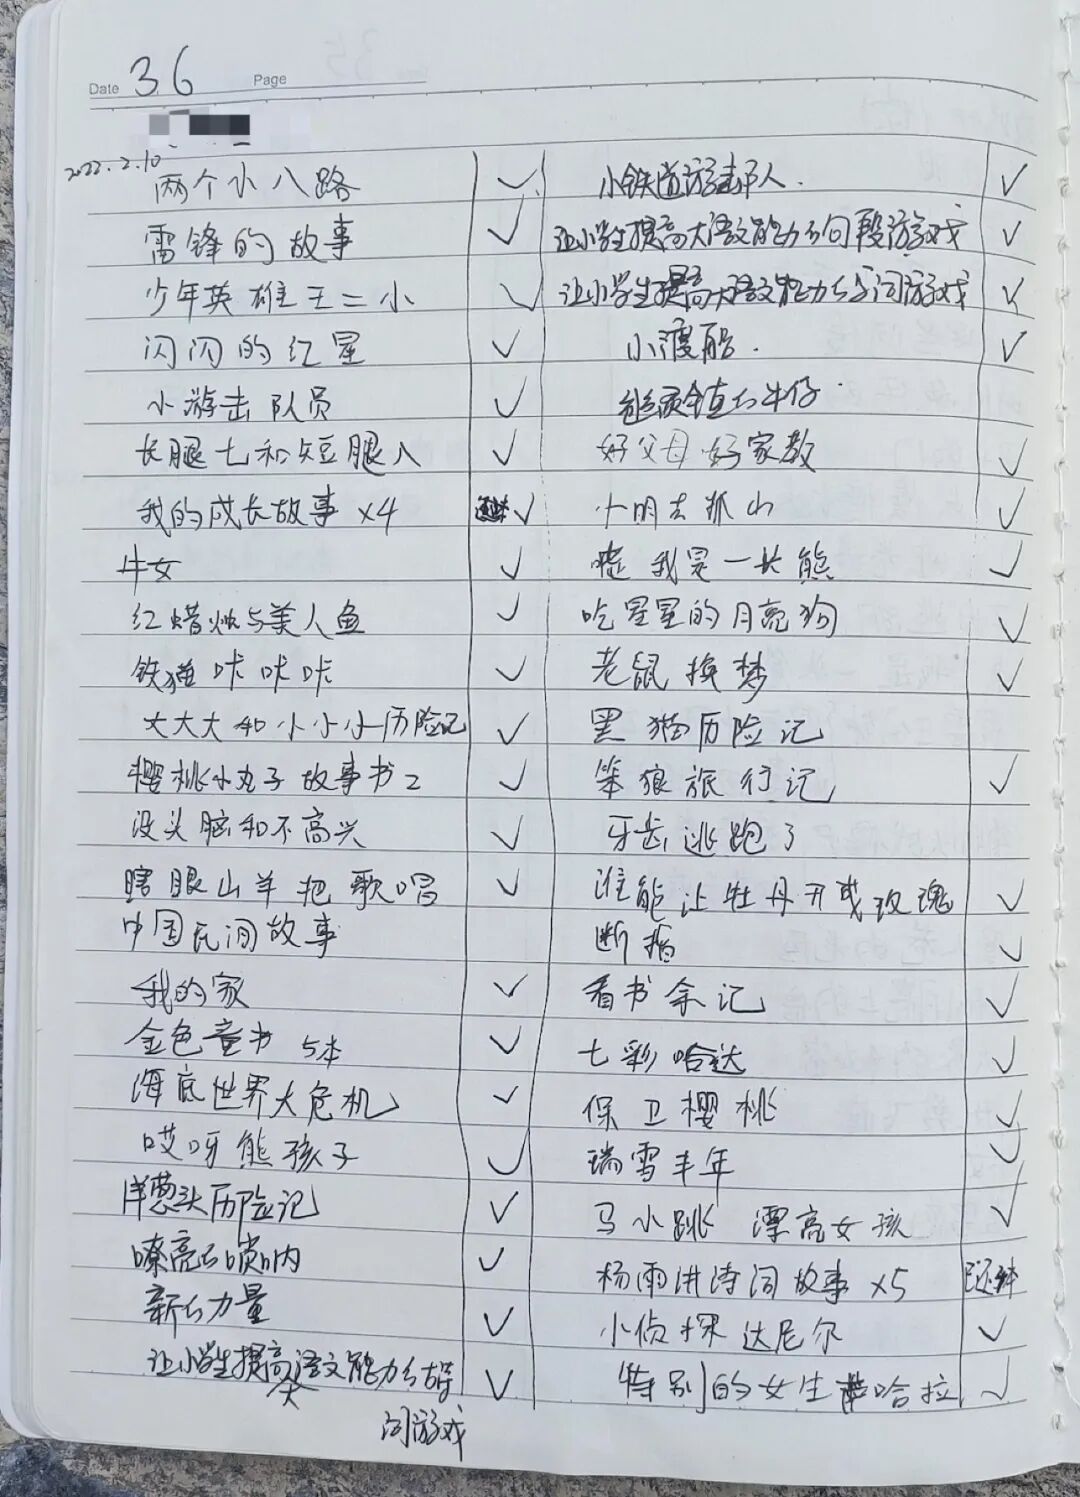 Date 36 Page
2022.2.10
两个小八路 ✓
雷锋的故事 ✓
少年英雄王二小 ✓
闪闪的红星 ✓
小游击队员 ✓
长腿七和短腿八 ✓
我的成长故事 x4 ✓
牛女 ✓
红蜡烛与美人鱼 ✓
铁猫咔咔咔 ✓
大大大和小小小历险记 ✓
樱桃小丸子故事书2 ✓
没头脑和不高兴 ✓
瞎眼山羊把歌唱 ✓
中国民间故事
我的家 ✓
金色童书 5本 ✓
海底世界大危机 ✓
哎呀熊孩子 ✓
洋葱头历险记 ✓
嘹亮的唢呐 ✓
新的力量 ✓
让小学生提高大语文能力的 ✓
词游戏
小铁道游击队 ✓
让小学生提高大语文能力的句段游戏 ✓
让小学生提高大语文能力的字词游戏 ✓
小渡船 ✓
镇的牛仔
好父母好家教 ✓
小明去孤山 ✓
嘘 我是一长熊 ✓
吃星星的月亮狗 ✓
老鼠换梦 ✓
黑猫历险记
笨狼旅行记 ✓
牙齿逃跑了
谁能让牡丹开成玫瑰 ✓
断指 ✓
看书余记 ✓
七彩哈达 ✓
保卫樱桃 ✓
瑞雪丰年 ✓
马小跳 漂亮女孩 ✓
杨雨讲诗词故事 x5
小侦探达尼尔 ✓
特别的女生萨哈拉 ✓